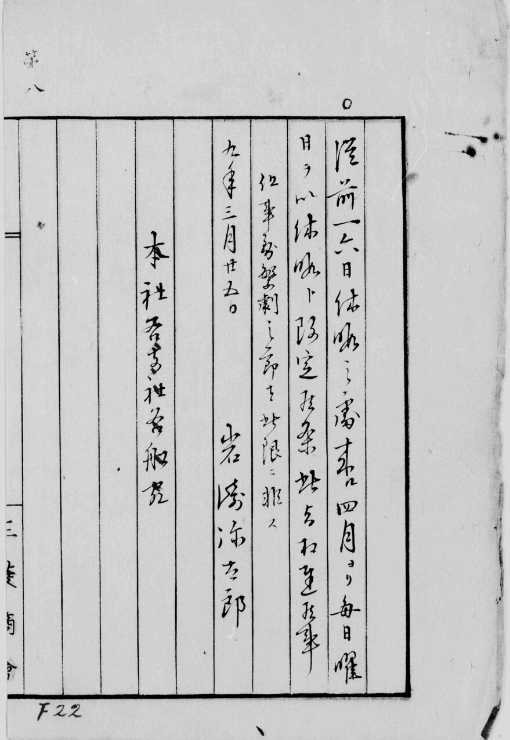 第八
○
従前一六日休暇之処来ル四月ヨリ毎日曜
日ヲ以休暇ト改定候条此旨相達候事
但事務繁劇之節者此限ニ非ス
九年三月廿五日
岩崎弥太郎
本社各支社各船宛
三菱商会
F22